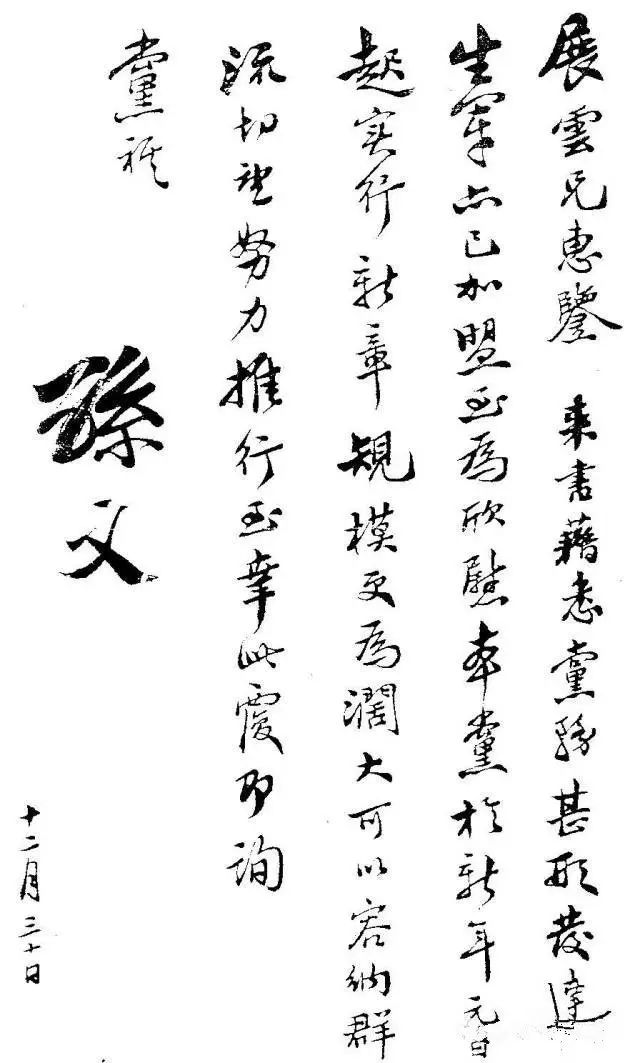 展雲兄惠鑒　来書藉悉黨務甚形發達
生軍亦已加盟至為欣慰本黨於新年元日
起实行新章規模更為濶大可以容納群
流切望努力推行至幸此覆即詢
黨祺
孫文
十二月三十日